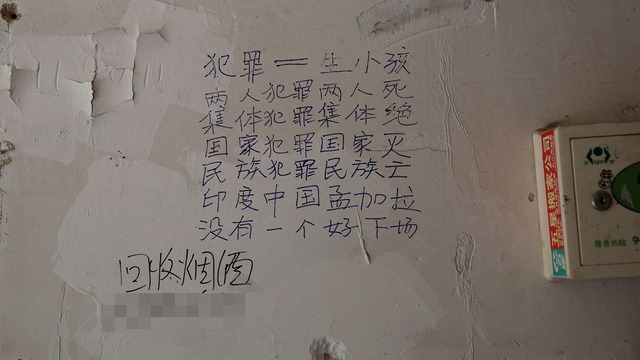 犯罪＝生小孩
两人犯罪两人死
集体犯罪集体绝
国家犯罪国家灭
民族犯罪民族亡
印度中国孟加拉
没有一个好下场
回收烟酒
五星搬家公司
服务热线